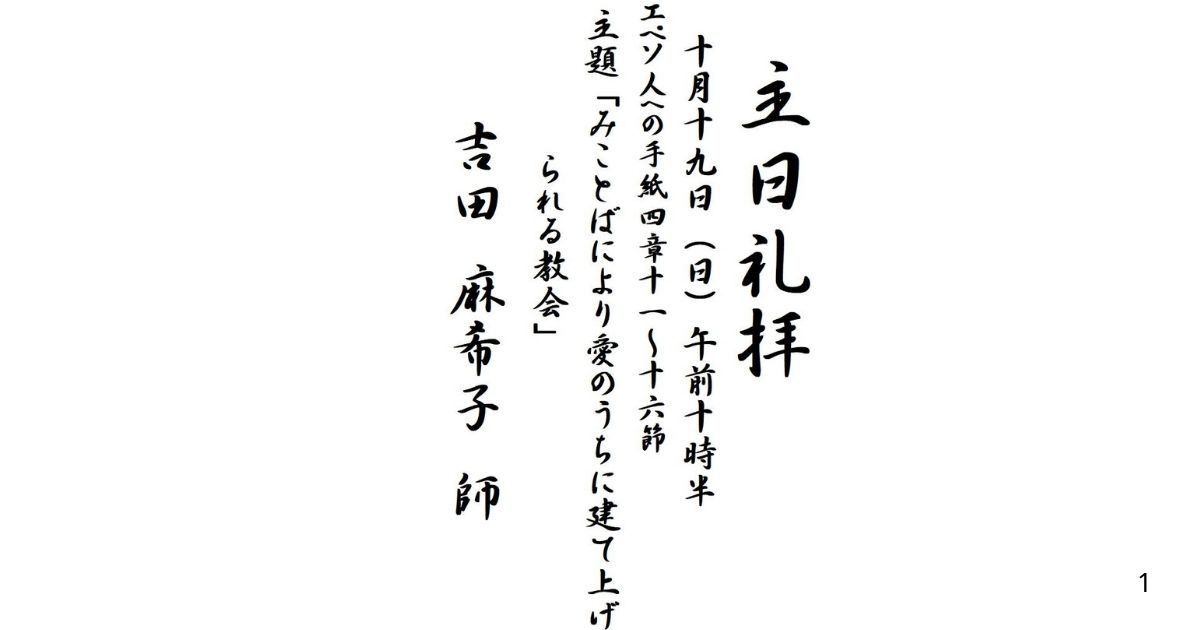 主日礼拝
十月十九日（日）午前十時半
エペソ人への手紙四章十一～十六節
主題「みことばにより愛のうちに建て上げ
られる教会」
吉田　麻希子　師
1